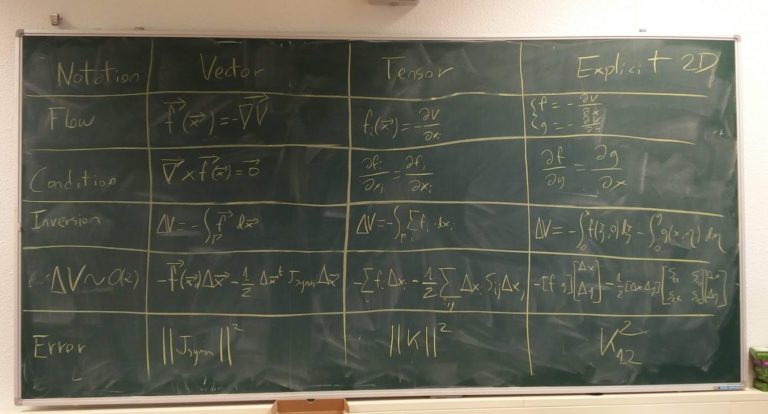 Notation Vector Tensor Explicit 2D
Flow f⃗(x⃗) = -∇⃗V⃗ fᵢ(x⃗) = -∂V/∂xᵢ { f = -∂V/∂x
g = -∂V/∂y
Condition ∇⃗ × f⃗(x⃗) = 0⃗ ∂fᵢ/∂xⱼ = ∂fⱼ/∂xᵢ ∂f/∂y = ∂g/∂x
Inversion ΔV = -∫_Γ f⃗ · dx⃗ ΔV = -∫_Γ Σᵢ fᵢ · dxᵢ ΔV = -∫₀ˣ f(ξ,0)dξ - ∫₀ʸ g(x,η)dη
ΔV ~ -f⃗(x⃗)Δx⃗ - 1/2 Δx⃗ᵗ J_symm Δx⃗ -Σᵢ fᵢ Δxᵢ - 1/2 Σᵢⱼ Δxᵢ Sᵢⱼ Δxⱼ -[f g][Δx Δy] - 1/2 [Δx Δy][Δx Δy]
Error ||J_symm||² ||K||² K₁₂²